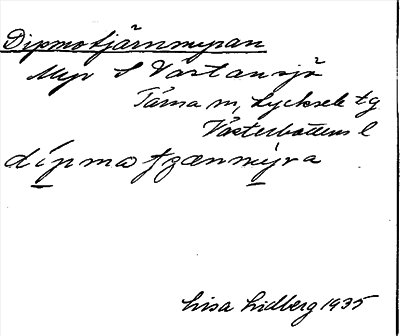 Dipmotjärnmyran
Myr S Västansjö
Tärna sn, Lycksele tg
Västerbottens l
dípma tzænmýra
Lisa Lidberg 1935